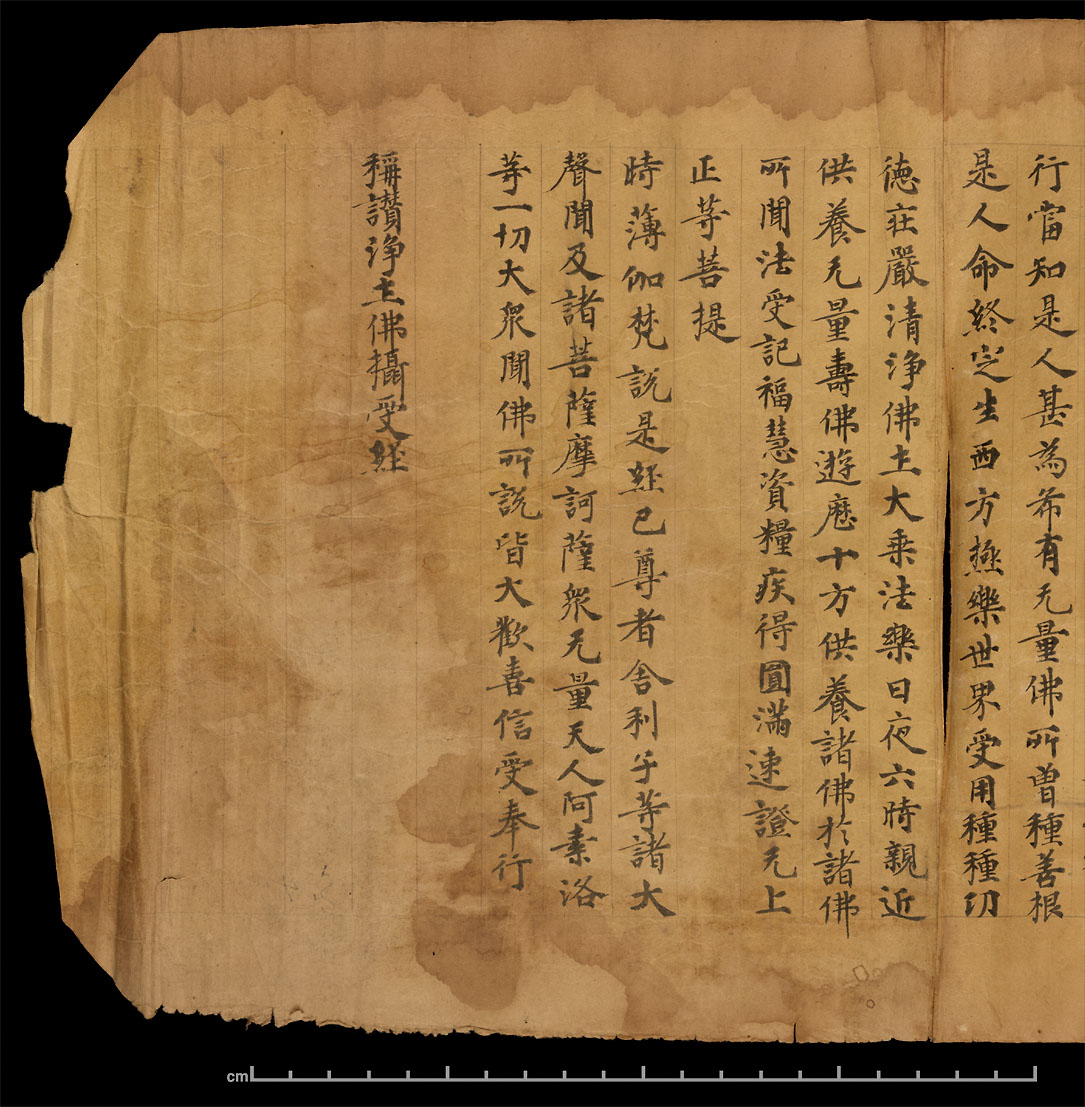 行當知是人甚為希有无量佛所曾種善根
是人命終定生西方極樂世界受用種種功
德莊嚴清淨佛土大乘法樂日夜六時親近
供養无量壽佛遊歷十方供養諸佛於諸佛
所聞法受記福慧資糧疾得圓滿速證无上
正等菩提
時薄伽梵說是經已尊者舍利子等諸大
聲聞及諸菩薩摩訶薩眾无量天人阿素洛
等一切大眾聞佛所說皆大歡喜信受奉行
稱讚淨土佛攝受經
cm